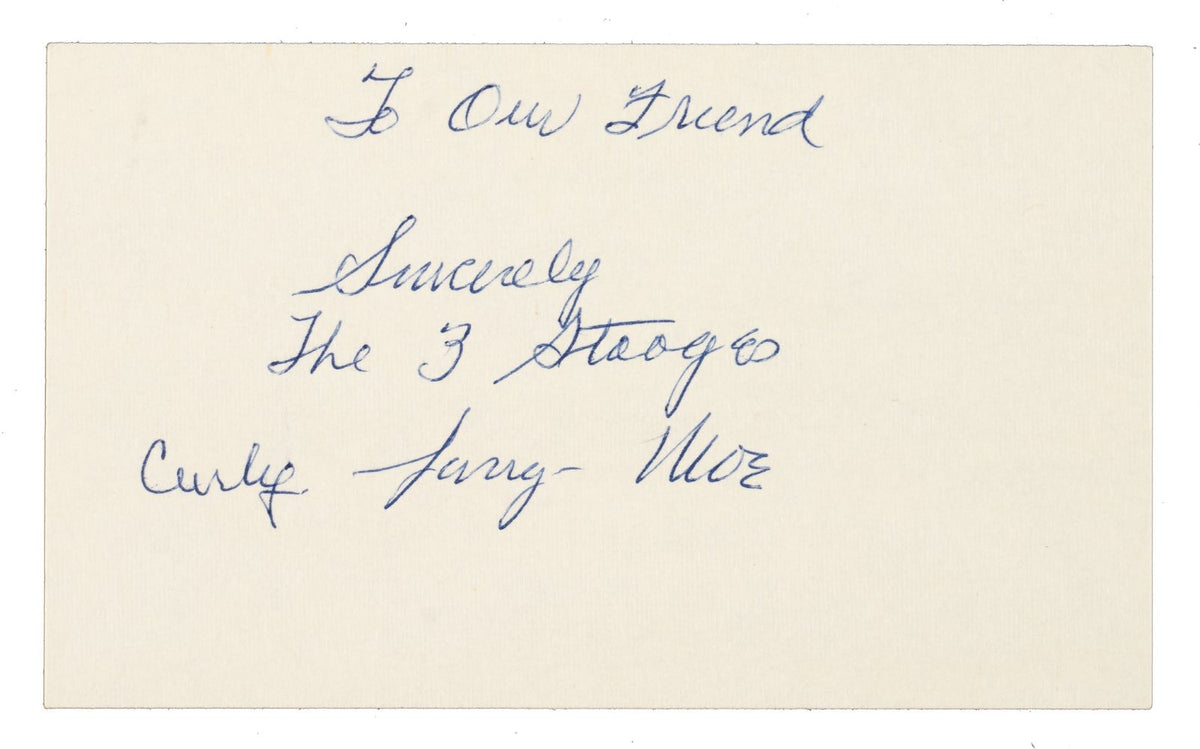 To Our Friend
Sincerely
The 3 Stooges
Curly Larry Moe